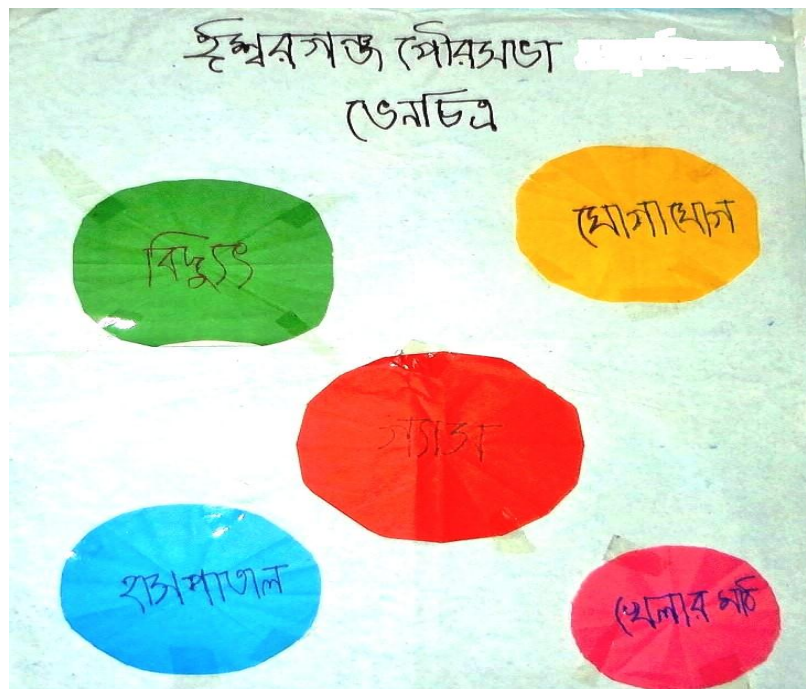 ঈশ্বরগঞ্জ পৌরসভা
ভেনচিত্র
বিদ্যুৎ
যোগাযোগ
গ্যাস
হাসপাতাল
খেলার মাঠ